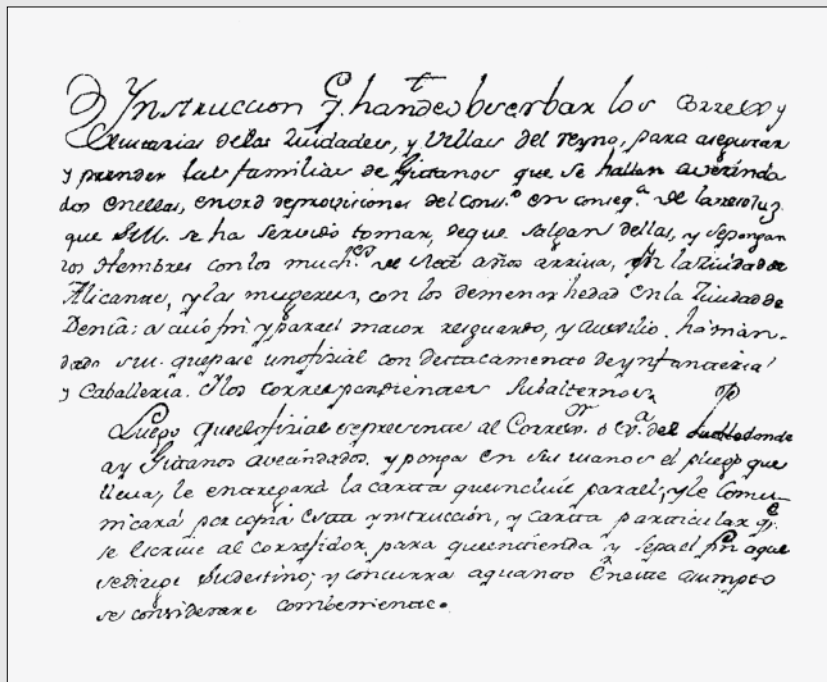 Ynstruccion q.e han deobserbar los Correxs y
Justicias delas Ziudades, y Villas del reyno, para asegurar
y prender las familias de Gitanos que se hallan averinda
dos enellas, envrd deprovisiones del Cons.o en conseq.a de laresoluz.
que S.M. se ha servido tomar, deque salgan dellas, y sepongan
los Hombres con los much.os de siete años arriva, en laZiudad de
Alicante, ylas mugeres, con los demenor hedad en la Ziudad de
Denia: a cuio fin, y parael maior resguardo, y auxilio, háman-
dado S.M. quepase unofizial con destacamento de ynfanteria
y Caballeria. Ylos correspondientes subalternos,
Luego queelofizial sepresente al Correx.or o Ju.a del Pueblodonde
ay Gitanos avecindados, y ponga en sus manos el pliego que
lleva, le entregará la carta queincluie parael; yle Comu-
nicará porcopia esta ynstrucción, y carta particular q.e
se escrive al corregidor, para queentienda y sepael fin aque
sedirige Sudestino; y concurra aquanto Eneste asumpto
se considerare combeniente.